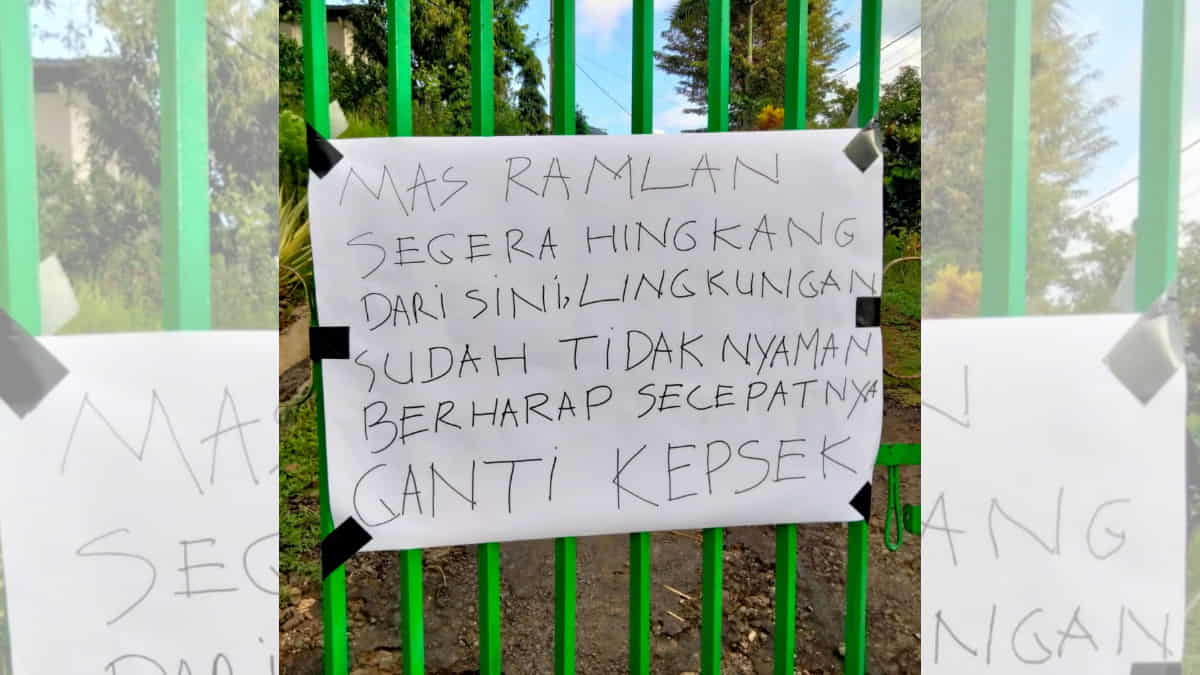 MAS RAMLAN
SEGERA HINGKANG
DARI SINI, LINGKUNGAN
SUDAH TIDAK NYAMAN
BERHARAP SECEPATNYA
GANTI KEPSEK